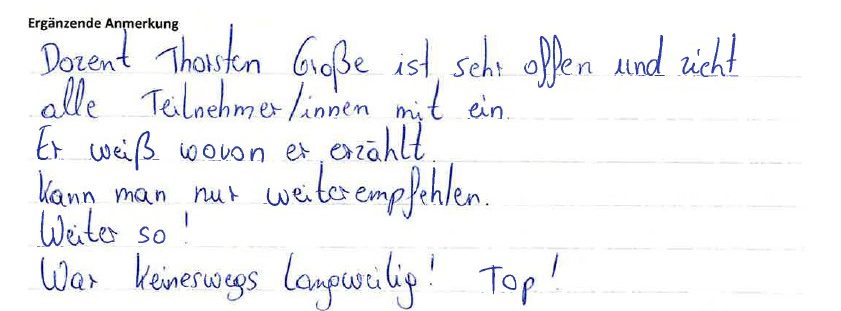 Ergänzende Anmerkung
Dozent Thorsten Große ist sehr offen und zieht
alle Teilnehmer/innen mit ein.
Er weiß wovon er erzählt.
Kann man nur weiterempfehlen.
Weiter so!
War keineswegs langweilig! Top!